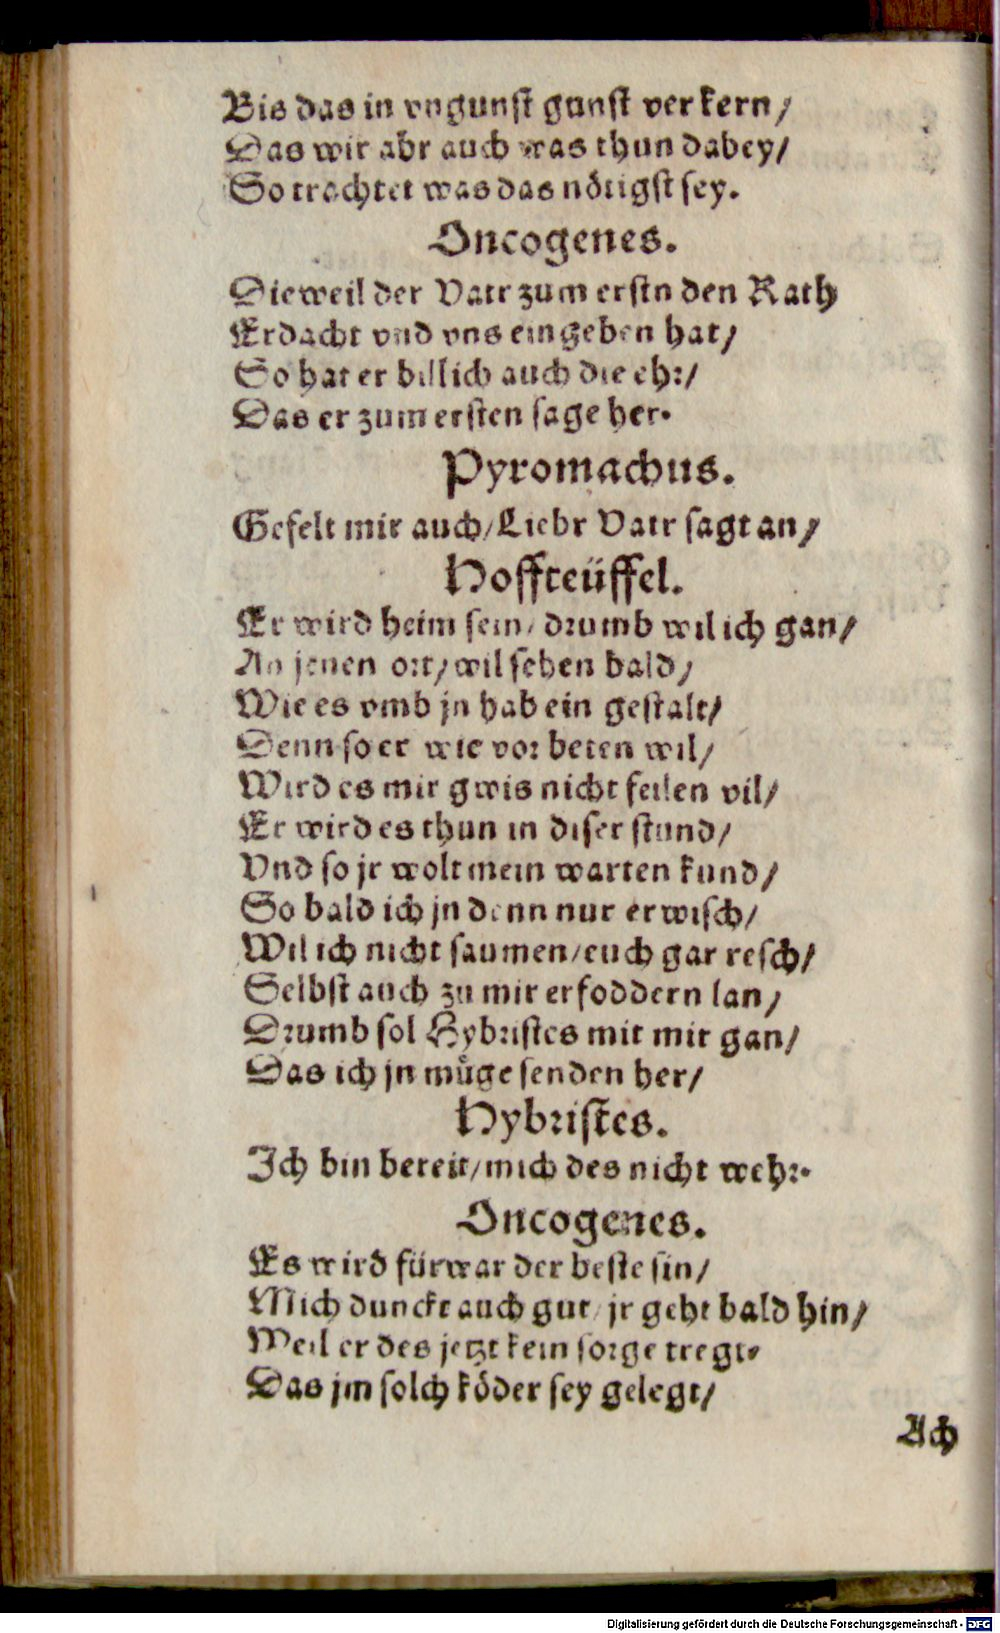 Bis das in vngunst gunst verkern /
Das wir abr auch was thun dabey /
So trachtet was das nötigst sey.
Oncogenes.
Dieweil der Vatr zum erstn den Rath
Erdacht vnd vns eingeben hat /
So hat er billich auch die ehr /
Das er zum ersten sage her.
Pyromachus.
Gefelt mir auch / Liebr Vatr sagt an /
Hoffteüffel.
Er wird heim sein / drumb wil ich gan /
An jenen ort / wil sehen bald /
Wie es vmb jn hab ein gestalt /
Denn so er wie vor beten wil /
Wird es mir gwis nicht feilen vil /
Er wird es thun in diser stund /
Vnd so jr wolt mein warten kund /
So bald ich jn denn nur erwisch /
Wil ich nicht saumen / euch gar resch /
Selbst auch zu mir erfoddern lan /
Drumb sol Hybristes mit mir gan /
Das ich jn müge senden her /
Hybristes.
Ich bin bereit / mich des nicht wehr.
Oncogenes.
Es wird fürwar der beste sin /
Mich dunckt auch gut / jr geht bald hin /
Weil er des jetzt kein sorge tregt /
Das jm solch köder sey gelegt /
Ach
Digitalisierung gefördert durch die Deutsche Forschungsgemeinschaft - DFG